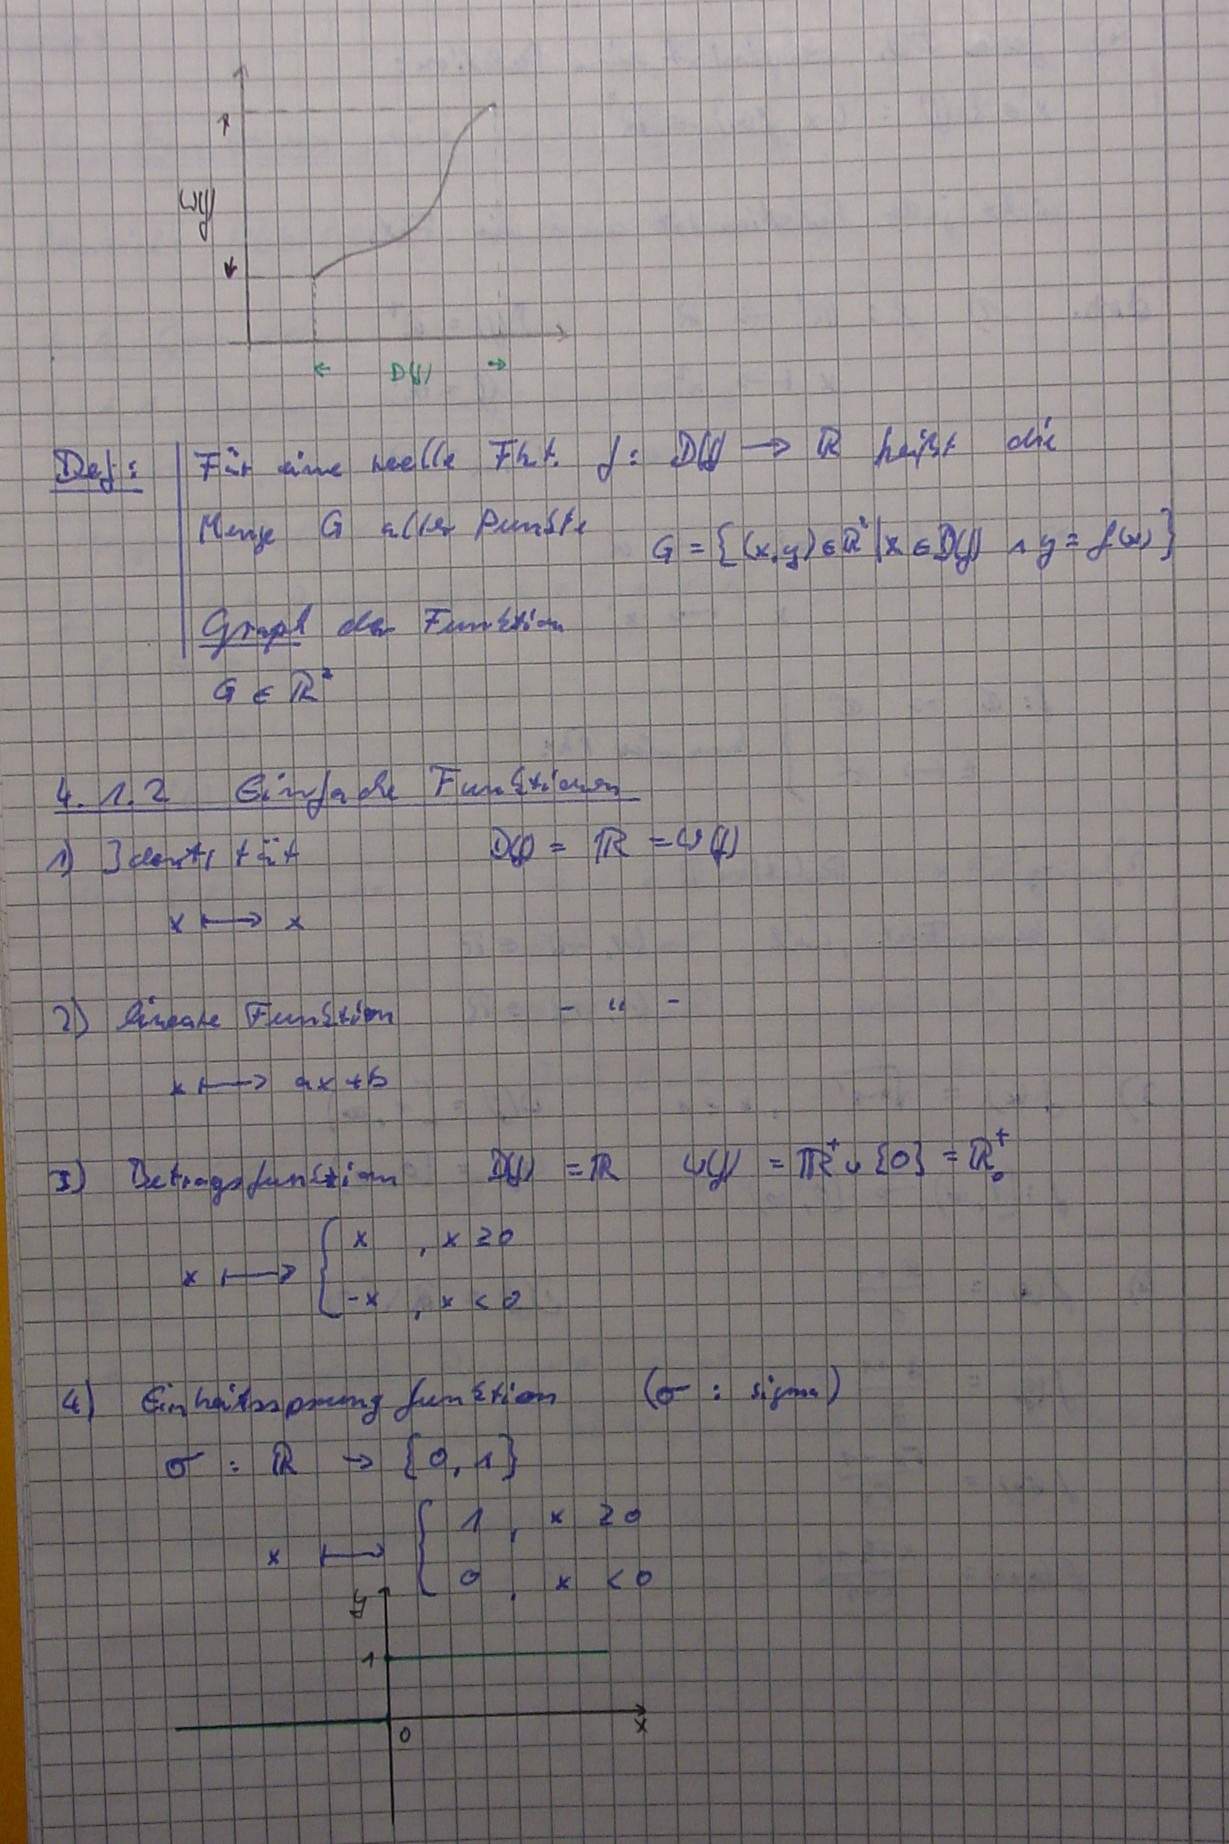 W(f)
D(f)
Def: Für eine reelle Fkt. f: D(f) → ℝ heißt die
Menge G aller Punkte G = {(x,y) ∈ ℝ² | x ∈ D(f) ∧ y = f(x)}
Graph der Funktion
G ∈ ℝ²
4.1.2 Einfache Funktionen
1) Identität D(f) = ℝ = W(f)
x ⟼ x
2) lineare Funktion - " -
x ⟼ ax + b
3) Betragsfunktion D(f) = ℝ W(f) = ℝ⁺ ∪ {0} = ℝ₀⁺
x ⟼ { x , x ≥ 0
-x , x < 0
4) Einheitssprungfunktion (σ : sigma)
σ : ℝ → {0, 1}
x ⟼ { 1 , x ≥ 0
0 , x < 0
y
1
0 x